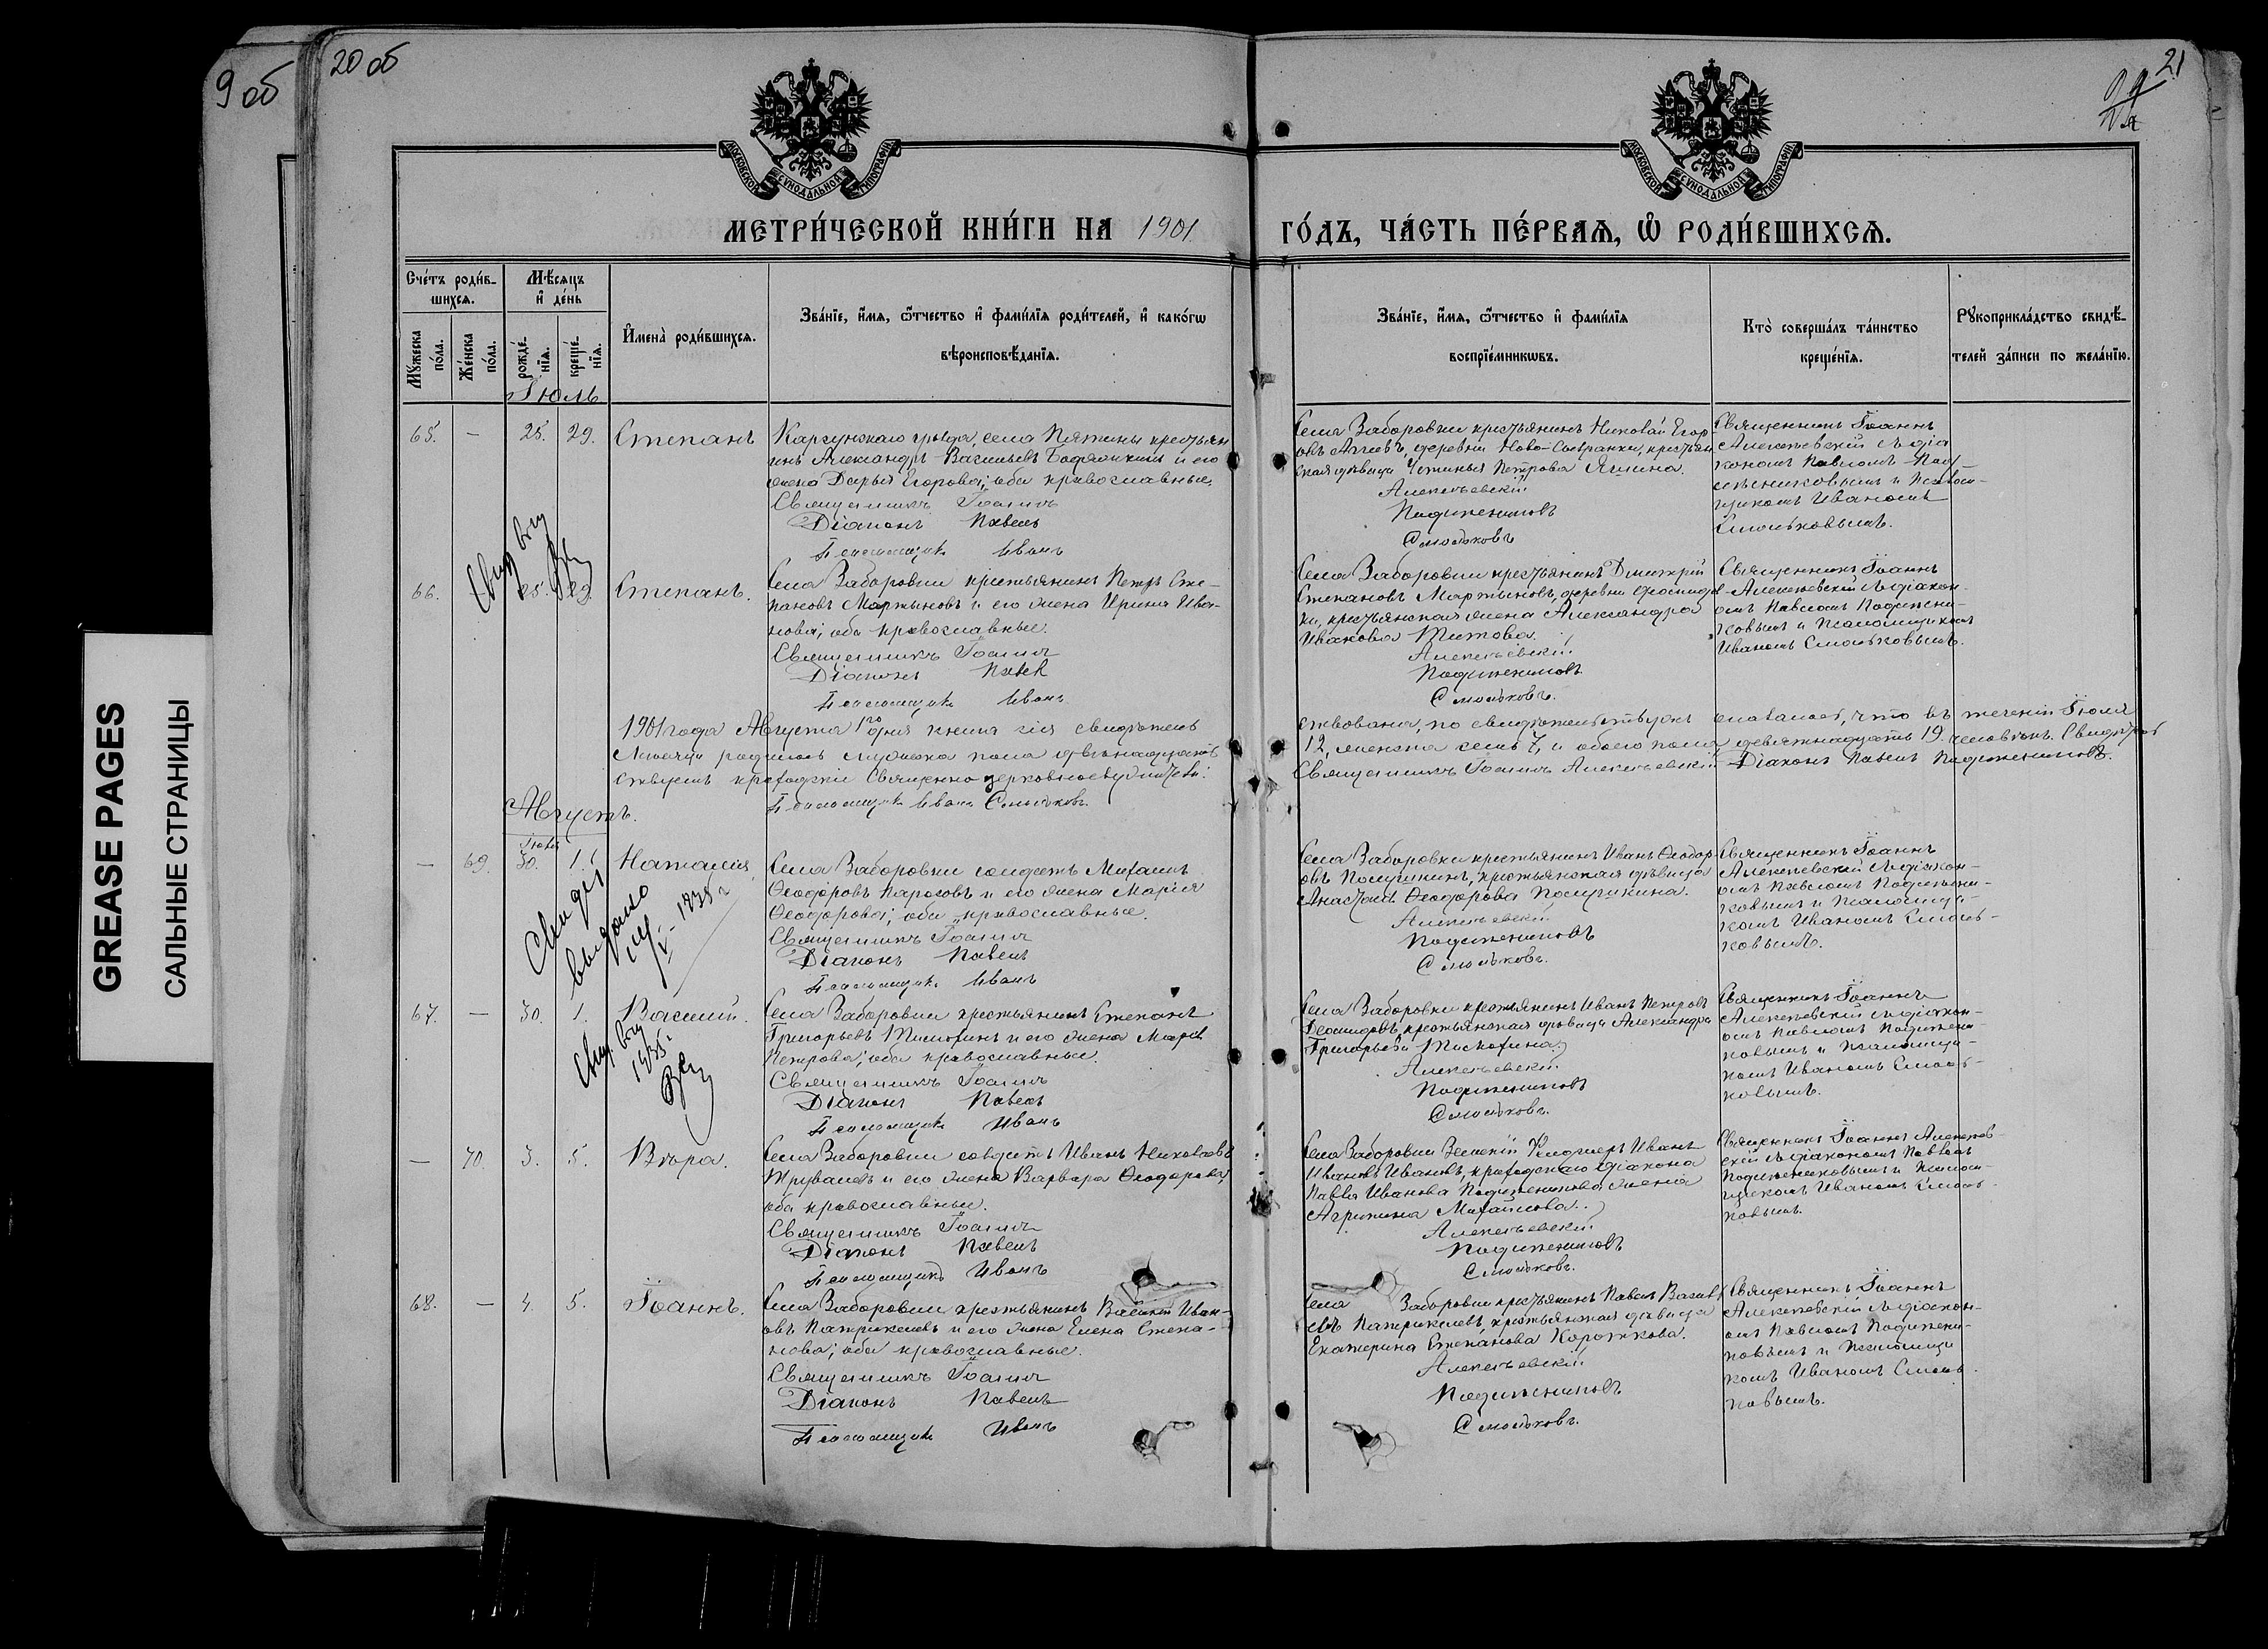 9 об
20 об
21
МОСКОВСКОЙ СѴНОДАЛЬНОЙ ТИПОГРАФІИ
МОСКОВСКОЙ СѴНОДАЛЬНОЙ ТИПОГРАФІИ
МЕТРИ́ЧЕСКОЙ КНИ́ГИ НА 1901 ГО́ДЪ, ЧА́СТЬ ПЕ́РВАѦ, Ѽ РОДИ́ВШИХСѦ.
Сче́тъ роди́в-
шихсѧ.
Мꙋ́жеска по́ла.
Же́нска по́ла.
Мѣ́сѧцъ
и҆ де́нь
рожде́-
нїѧ.
креще́-
нїѧ.
И҆мена̀ роди́вшихсѧ.
Зва́нїе, и҆́мѧ, ѻ҆́тчество и҆ фами́лїѧ роди́телей, и҆ како́гѡ
вѣроисповѣ́данїѧ.
Зва́нїе, и҆́мѧ, ѻ҆́тчество и҆ фами́лїѧ
воспрїе́мникѡвъ.
Кто̀ соверша́лъ та́инство
креще́нїѧ.
Рꙋкоприкла́дство свидѣ́-
телей за́писи по жела́нїю.
Іюль
65. — 25. 29. Степанъ
Карсунскаго уѣзда, села Пятины крестьян
инъ Александръ Васильевъ и его
жена Дарья Егорова; оба православные.
Священникъ Іоаннъ
Діаконъ Павелъ
Псаломщикъ Иванъ
Села Заборовки крестьянинъ Николай Егор
овъ деревни Ново- крестьян
ская дѣвица Петрова Яшина.
Алексѣевскій
Поджениковъ
Смольковъ
Священникъ Іоаннъ
Алексѣевскій съ діа
кономъ Павломъ Под-
жениковымъ и Псалом-
щикомъ Иваномъ
Смольковымъ.
66. 25. 29. Степанъ.
Села Заборовки крестьянинъ Петръ Сте-
пановъ Мартыновъ и его жена Ирина Ива-
нова; оба православные.
Священникъ Іоаннъ
Діаконъ Павелъ
Псаломщикъ Иванъ
Села Заборовки крестьянинъ Дмитрій
Степановъ Мартыновъ, деревни
ки, крестьянская жена Александра
Иванова Титова.
Алексѣевскій
Поджениковъ
Смольковъ.
Священникъ Іоаннъ
Алексѣевскій съ діакон-
омъ Павломъ Поджени-
ковымъ и Псаломщикомъ
Иваномъ Смольковымъ.
1901 года Августа 1го дня книга сія свидѣтель ствована, по свидѣтельству оказалось, что въ теченіи Іюля
мѣсяца родилось мужеска пола двѣнадцать 12, женска семь 7, и обоего пола девятнадцать 19. человѣкъ. Свидѣтель
ствуемъ приходскіе Священно церковнослужители: Священникъ Іоаннъ Алексѣевскій Діаконъ Павелъ Поджениковъ.
Псаломщикъ Иванъ Смольковъ.
Августъ.
Іюль
— 69. 30. 1. Наталія.
Села Заборовки солдатъ Михаилъ
Ѳеодоровъ и его жена Марія
Ѳеодорова; оба православные.
Священникъ Іоаннъ
Діаконъ Павелъ
Псаломщикъ Иванъ
Свид
выдано
Села Заборовки крестьянинъ Иванъ Ѳеодор-
овъ Полушкинъ, крестьянская дѣвица
Анастасія Ѳеодорова Полушкина.
Алексѣевскій
Поджениковъ
Смольковъ.
Священникъ Іоаннъ
Алексѣевскій съ діакон-
омъ Павломъ Поджени-
ковымъ и Псаломщи-
комъ Иваномъ Смоль-
ковымъ.
67. — 30. 1. Василій.
Села Заборовки крестьянинъ Степанъ
Григорьевъ и его жена Марія
Петрова; оба православные.
Священникъ Іоаннъ
Діаконъ Павелъ
Псаломщикъ Иванъ
Села Заборовки крестьянинъ Иванъ Петровъ
крестьянская дѣвица Александра
Григорьева
Алексѣевскій
Поджениковъ
Смольковъ.
Священникъ Іоаннъ
Алексѣевскій съ діакон-
омъ Павломъ Поджени-
ковымъ и Псаломщи-
комъ Иваномъ Смоль-
ковымъ.
— 70. 3. 5. Вѣра.
Села Заборовки солдатъ Иванъ Николаевъ
и его жена Варвара Ѳеодорова;
оба православные.
Священникъ Іоаннъ
Діаконъ Павелъ
Псаломщикъ Иванъ
Села Заборовки Земскій Фельдшеръ Иванъ
Ивановъ Ивановъ, приходскаго діакона
Павла Иванова Подженикова жена
Агрипина Михайлова.
Алексѣевскій
Поджениковъ
Смольковъ.
Священникъ Іоаннъ Алексѣев-
скій съ діакономъ Павломъ
Поджениковымъ и Псалом-
щикомъ Иваномъ Смоль-
ковымъ.
68. — 4. 5. Іоаннъ.
Села Заборовки крестьянинъ Василій Иван-
овъ Патрикеевъ и его жена Елена Степа-
нова; оба православные.
Священникъ Іоаннъ
Діаконъ Павелъ
Псаломщикъ Иванъ
Села Заборовки крестьянинъ Павелъ Васильев
евъ Патрикеевъ, крестьянская дѣвица
Екатерина Степанова Короткова.
Алексѣевскій
Поджениковъ
Смольковъ.
Священникъ Іоаннъ
Алексѣевскій съ діакон-
омъ Павломъ Поджени-
ковымъ и Псаломщи
комъ Иваномъ Смоль-
ковымъ.
GREASE PAGES
САЛЬНЫЕ СТРАНИЦЫ